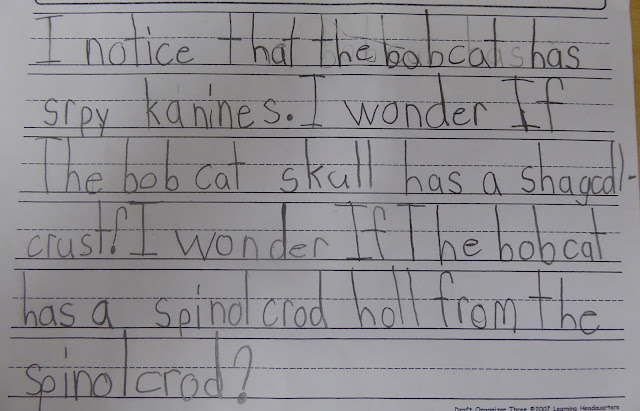 I notice that the bobcat has
srpy kanines. I wonder If
The bobcat skull has a shagcdl-
crust! I wonder If The bobcat
has a spinol crod holl from the
spinol crod?
Draft Organizer Three ©2007 Learning Headquarters